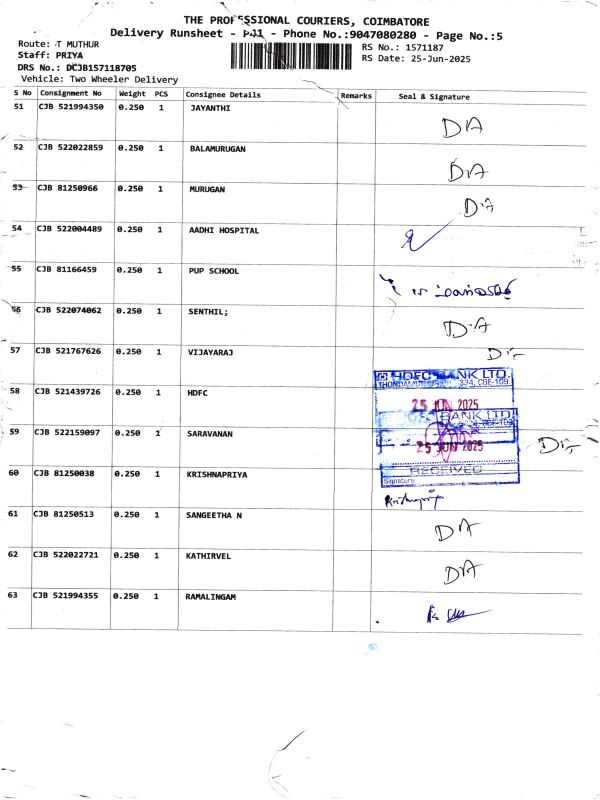 THE PROFESSIONAL COURIERS, COIMBATORE
Delivery Runsheet - PJ1 - Phone No.:9047080280 - Page No.:5
Route: T MUTHUR
RS No.: 1571187
Staff: PRIYA
RS Date: 25-Jun-2025
DRS No.: DCJB157118705
Vehicle: Two Wheeler Delivery
S No Consignment No Weight PCS Consignee Details Remarks Seal & Signature
51 CJB 521994350 0.250 1 JAYANTHI D/A
52 CJB 522022859 0.250 1 BALAMURUGAN D/A
53 CJB 81250966 0.250 1 MURUGAN D/A
54 CJB 522004489 0.250 1 AADHI HOSPITAL
55 CJB 81166459 0.250 1 PUP SCHOOL
56 CJB 522074062 0.250 1 SENTHIL; D/A
57 CJB 521767626 0.250 1 VIJAYARAJ
HDFC BANK LTD.
58 CJB 521439726 0.250 1 HDFC 25 JUN 2025
BANK LTD.
59 CJB 522159097 0.250 1 SARAVANAN 25 JUN 2025
RECEIVED
Signature
60 CJB 81250038 0.250 1 KRISHNAPRIYA Krishnapriya
61 CJB 81250513 0.250 1 SANGEETHA N D/A
62 CJB 522022721 0.250 1 KATHIRVEL D/A
63 CJB 521994355 0.250 1 RAMALINGAM